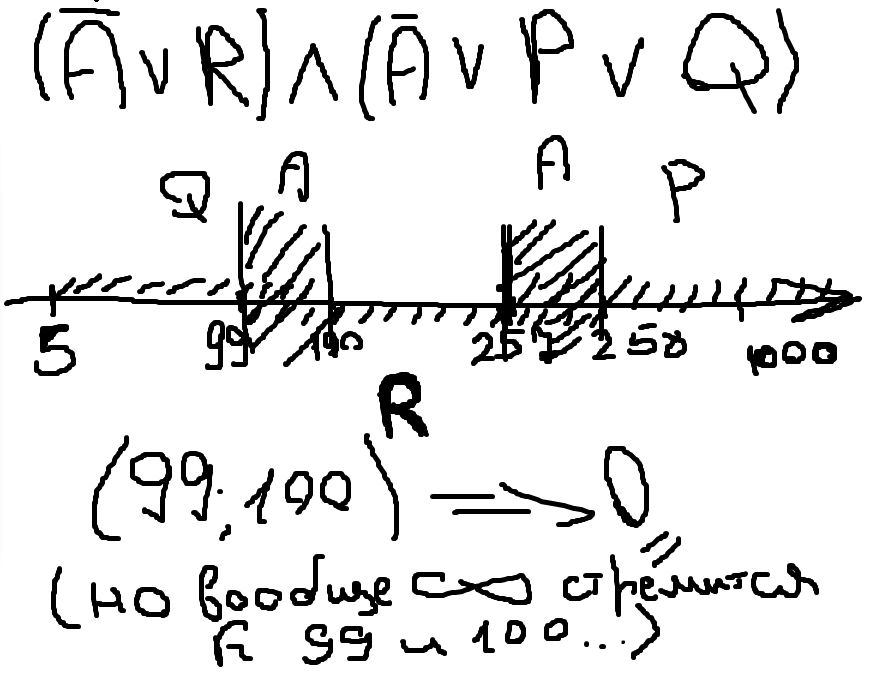 (Ā ∨ R) ∧ (Ā ∨ P ∨ Q)
Q A A P
5 99 100 257 258 1000
R
(99;100) => 0
(но вообще ∞ стремится
к 99 и 100...)